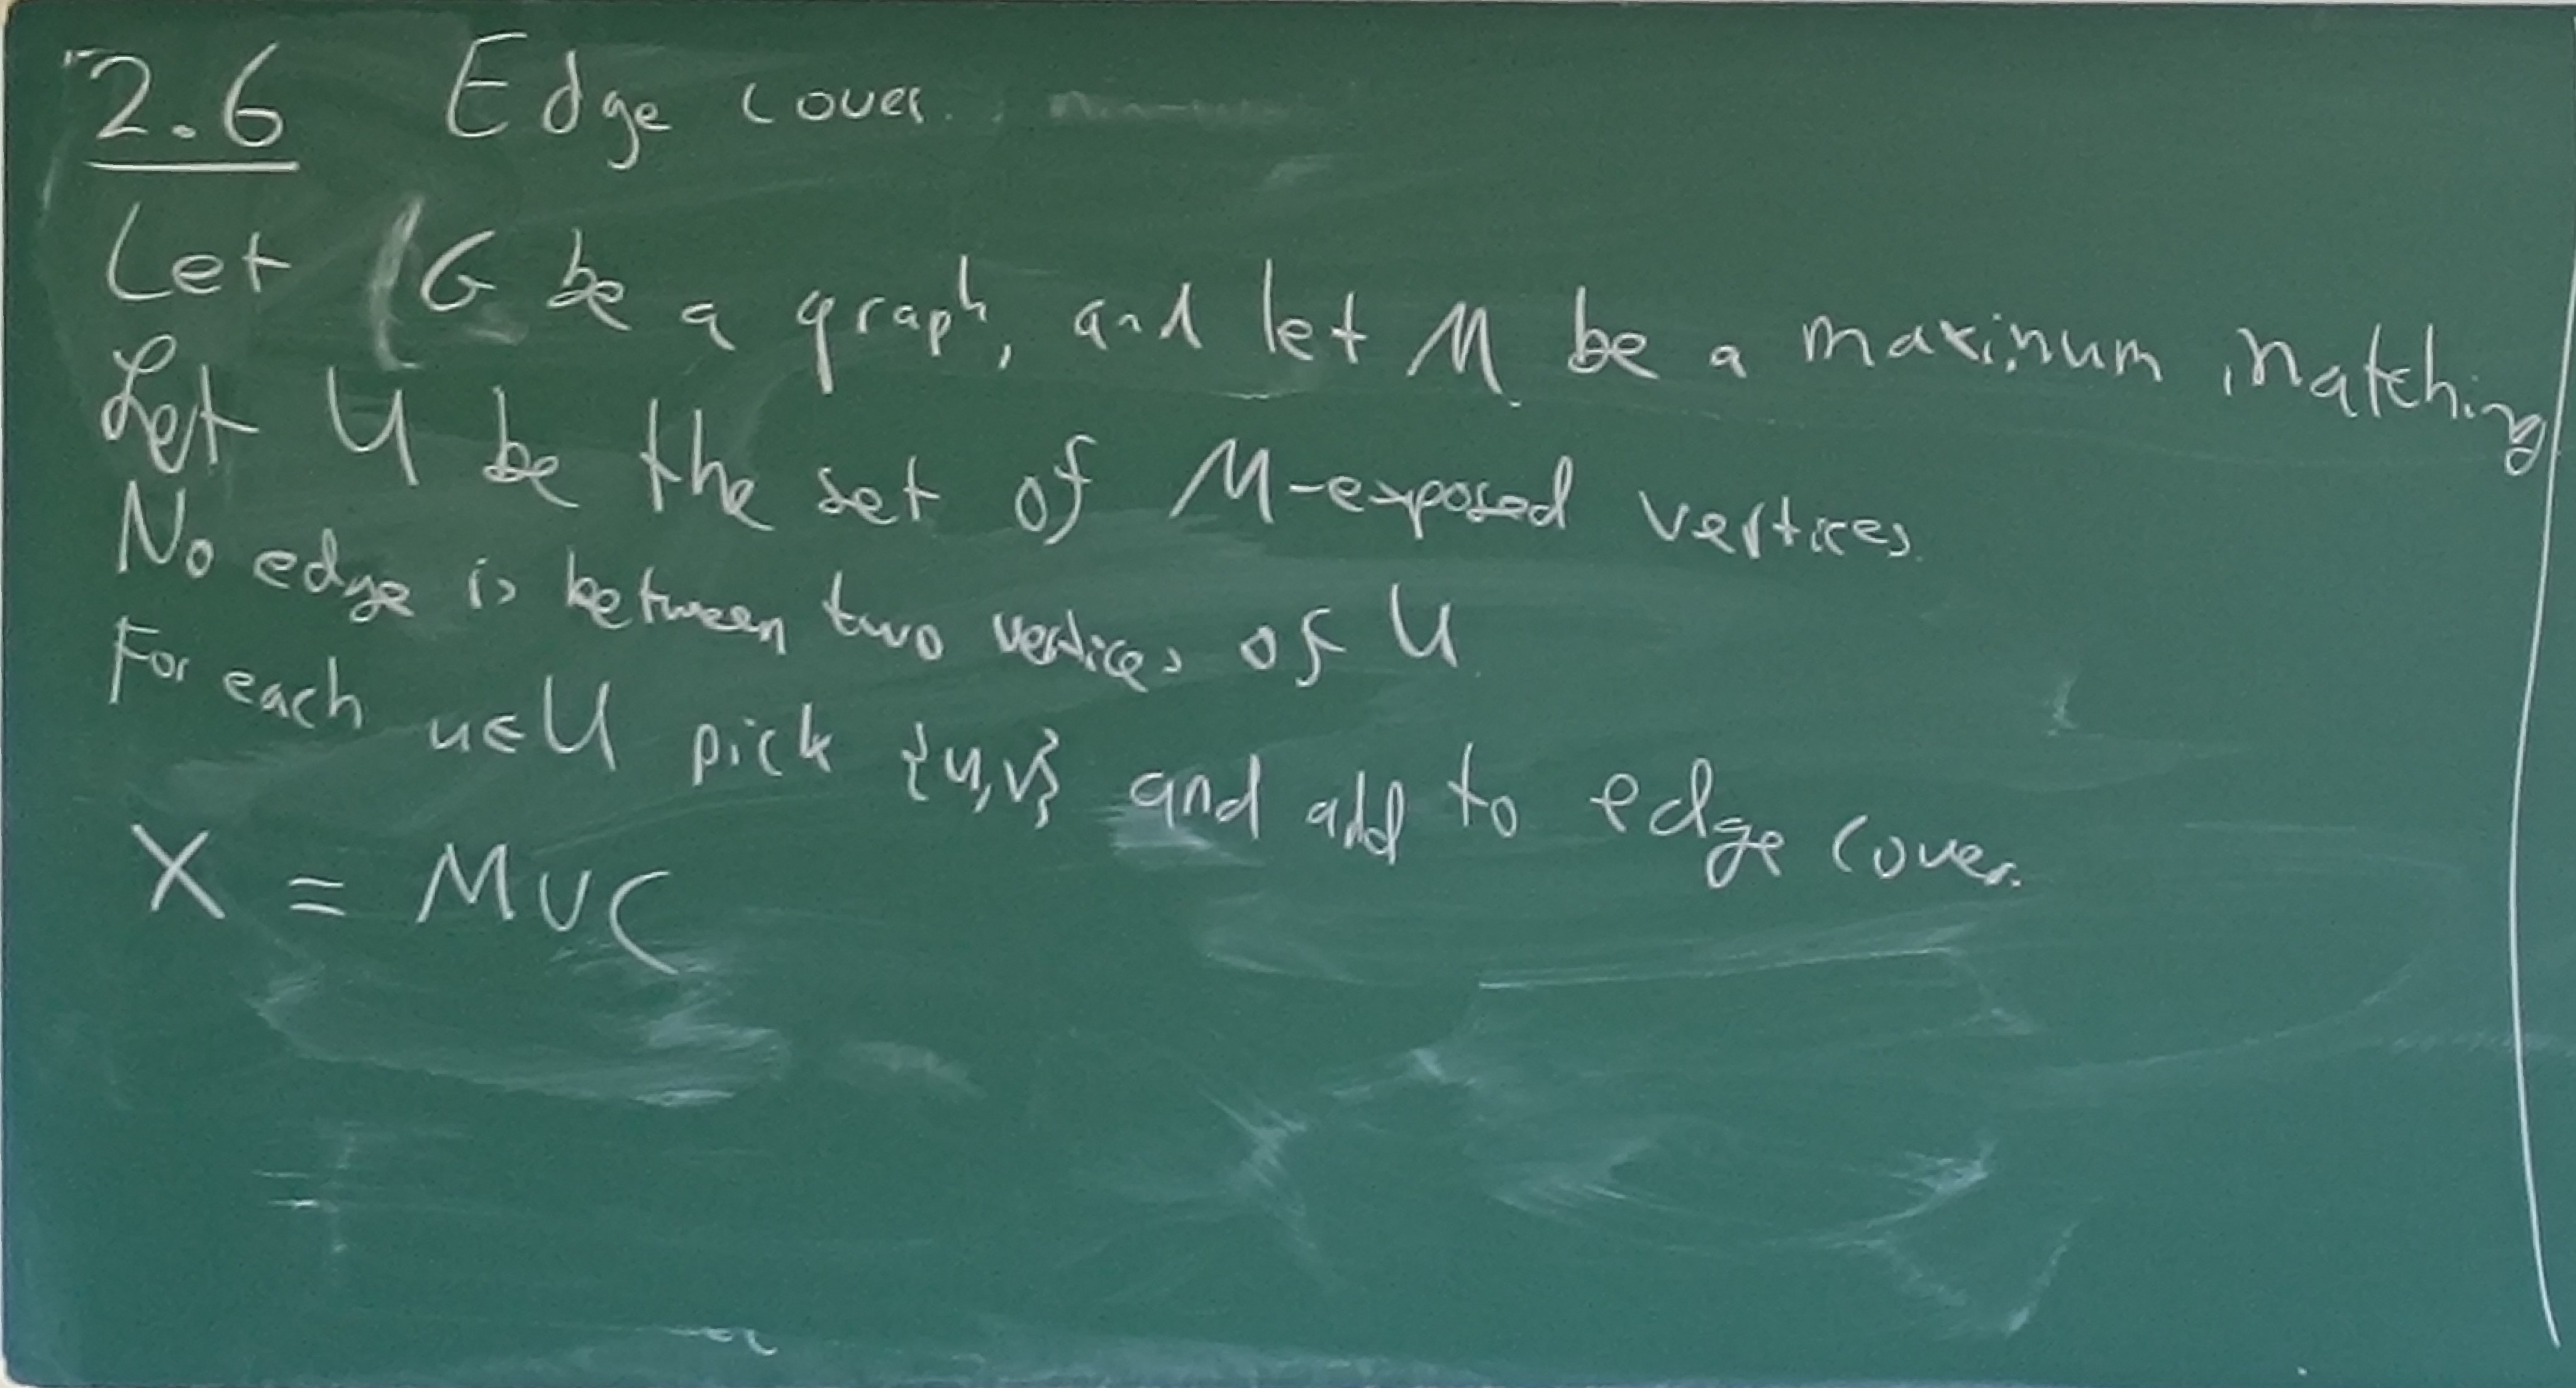 2.6 Edge cover.
Let G be a graph, and let M be a maximum matching
Let U be the set of M-exposed vertices.
No edge is between two vertices of U
For each u∈U pick {u,v} and add to edge cover.
X = M∪C